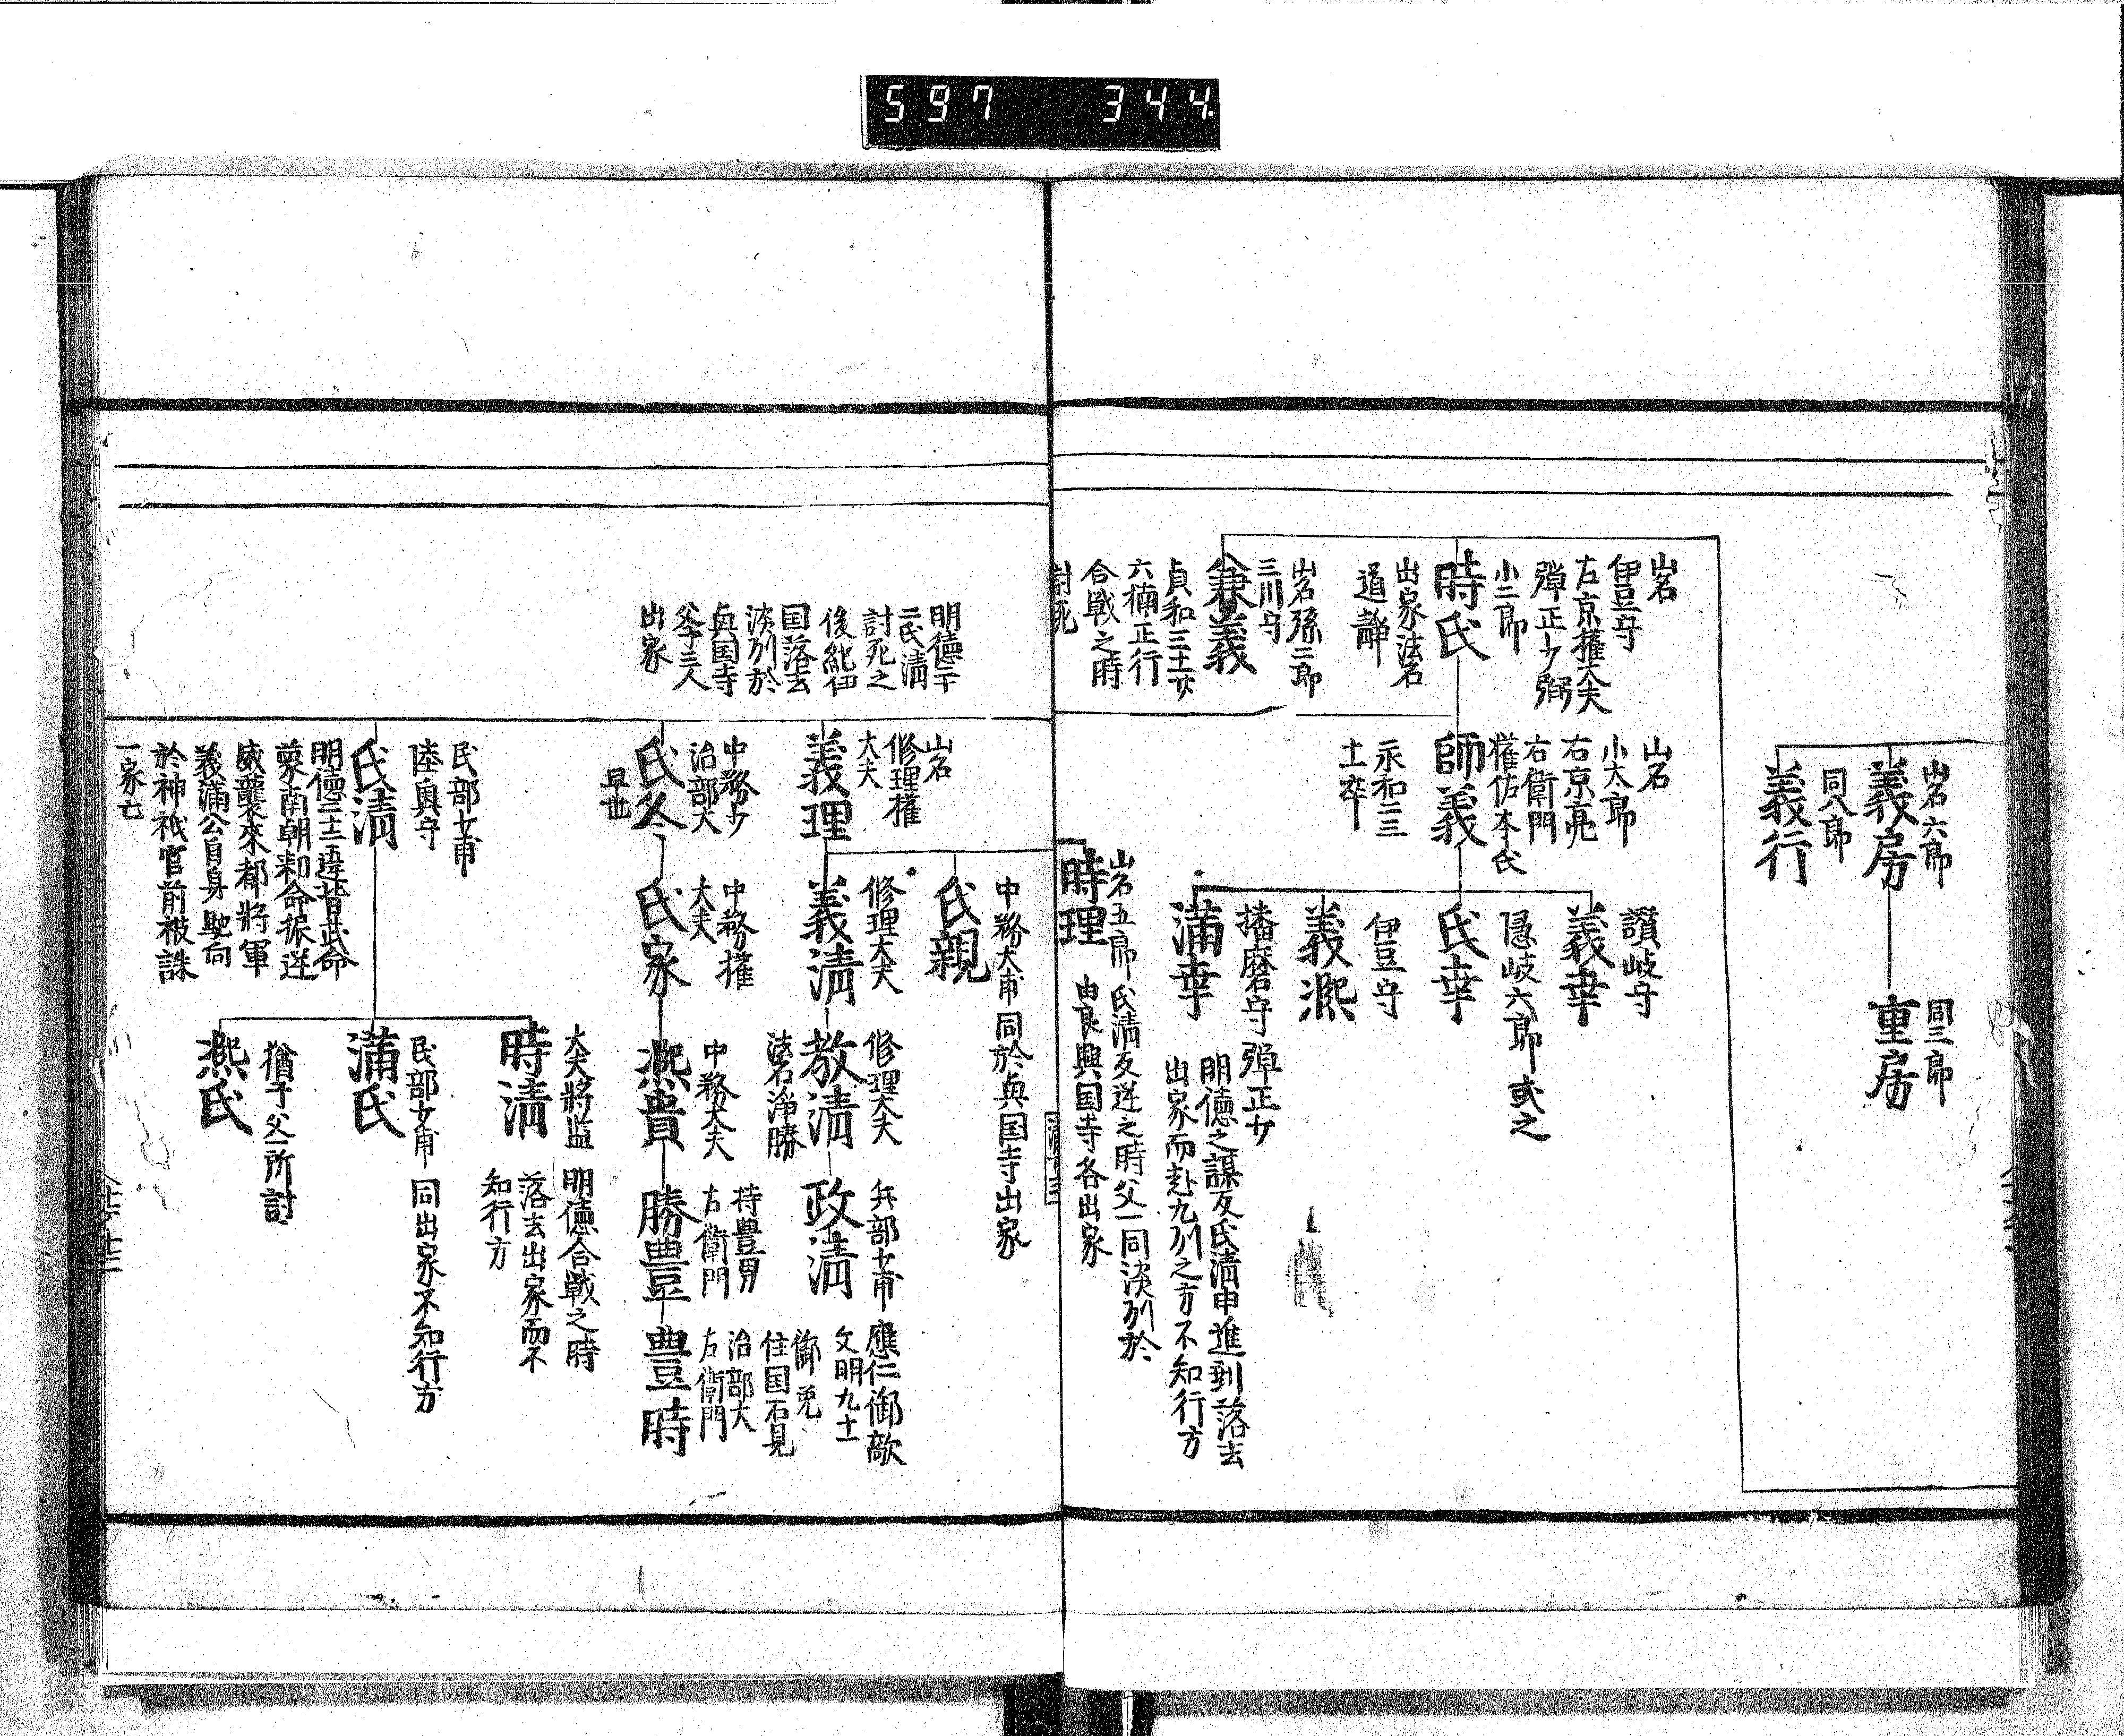 597 344.
山名六郎
義房
同八郎
義行
同三郎
重房
山名
伊豆守
左京権大夫
弾正少弼
小二郎
時氏
出家法名
道静
山名孫三郎
三川守
兼義
貞和三十一廿
六楠正行
合戦之時
討死
山名
小太郎
右京亮
右衛門
権佐本氏
師義
永和二三
十一卒
讃岐守
義幸
隠岐六郎或之
氏幸
伊豆守
義熈
播磨守弾正少
満幸
明徳之謀反氏清申進到落去
出家而赴九州之方不知行方
山名五郎氏清反逆之時父一同淡列於
時理
由良興国寺各出家
明徳二
氏清
討死之
後紀伊
国落去
淡列於
興国寺
父子三人
出家
山名
修理権
大夫
義理
中務大甫同於興国寺出家
氏親
修理大夫
義清
修理大夫
教清
法名浄勝
兵部少甫
政清
應仁御敵
文明九十一
御免
住国石見
中務少
治部大
氏冬
早世
中務権
大夫
氏家
中務大夫
熈貴
持豊男
右衛門
勝豊
治部大
左衛門
豊時
民部少甫
陸奥守
氏清
明徳二十二五違背武命
蒙南朝勅命振逆
威襲來都將軍
義満公自身馳向
於神祇官前被誅
一家亡
大夫将監
時清
明徳合戦之時
落去出家而不
知行方
民部少甫
満氏
同出家不知行方
猶子父一所討
熈氏